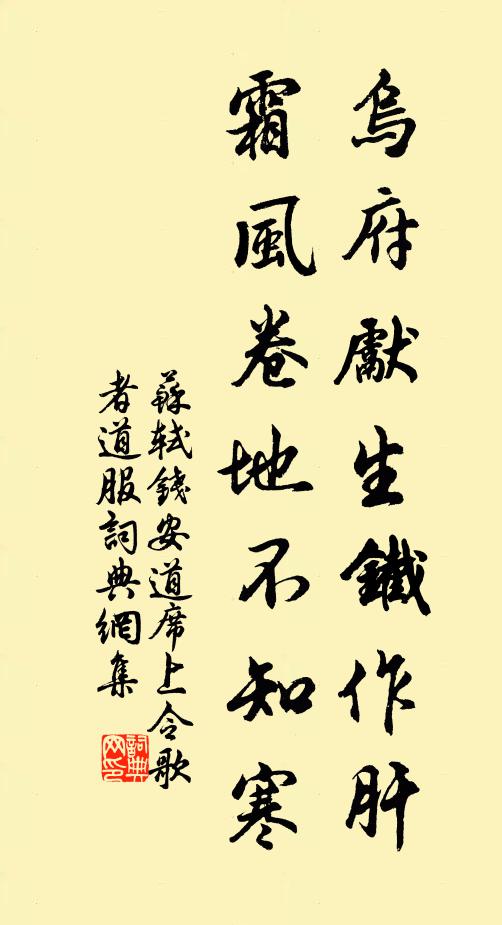 烏府獻生鐵作肝
霜風卷地不知寒
蘇軾錢安道席上令歌
者道服詞典網集
詞典
网印